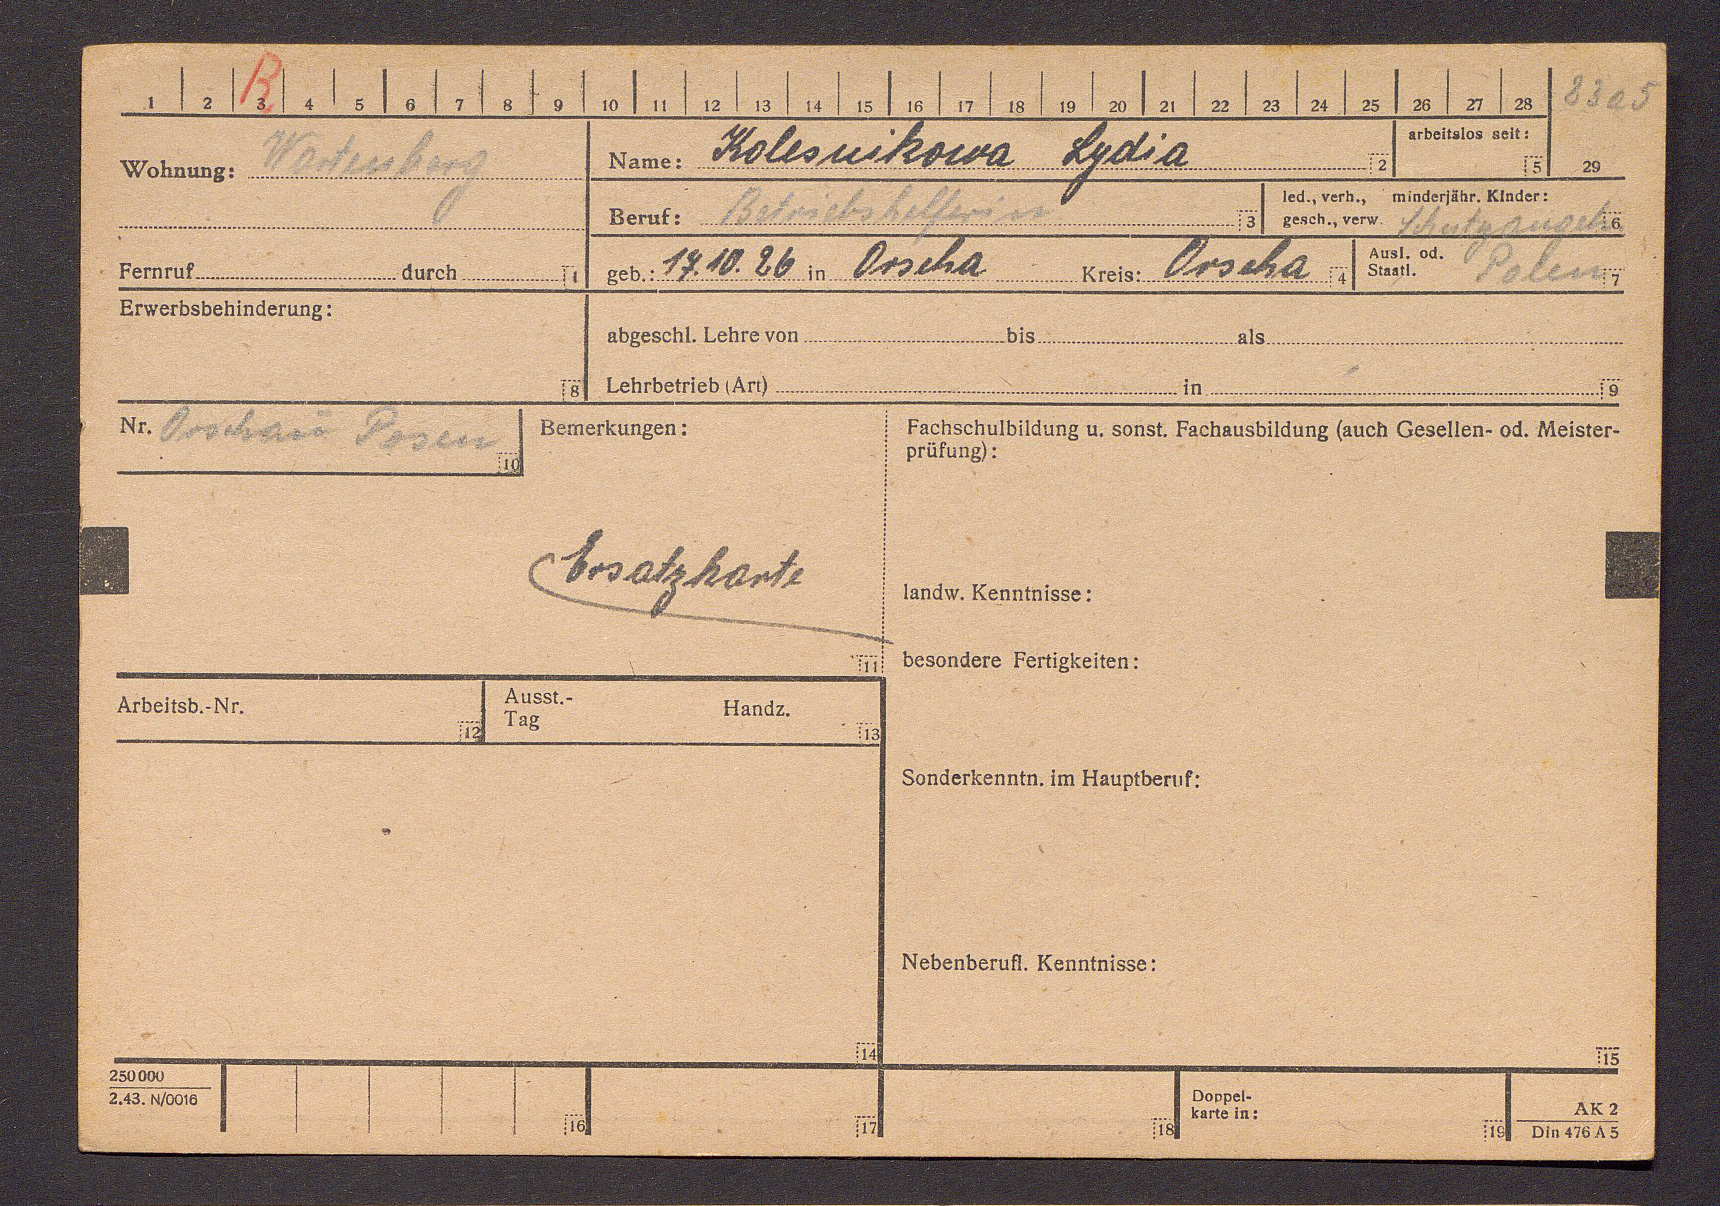 R
1 2 3 4 5 6 7 8 9 10 11 12 13 14 15 16 17 18 19 20 21 22 23 24 25 26 27 28 83a5
Wohnung: Wartenberg
Name: Kolesnikowa Lydia 2
arbeitslos seit: 5
29
Beruf: Betriebshelferin 3
led., verh., minderjähr. Kinder:
gesch., verw. Schutzangeh. 6
Fernruf durch 1
geb.: 17.10.26 in Orscha Kreis: Orscha 4
Ausl. od.
Staatl. Polen 7
Erwerbsbehinderung:
8
abgeschl. Lehre von bis als
Lehrbetrieb (Art) in 9
Nr. Posen 10
Bemerkungen:
Ersatzkarte
11
Fachschulbildung u. sonst. Fachausbildung (auch Gesellen- od. Meister-
prüfung):
landw. Kenntnisse:
besondere Fertigkeiten:
Arbeitsb.-Nr. 12
Ausst.-
Tag Handz. 13
Sonderkenntn. im Hauptberuf:
Nebenberufl. Kenntnisse:
14
15
250000
2.43. N/0016
16
17
18
Doppel-
karte in: 19
AK 2
Din 476 A 5